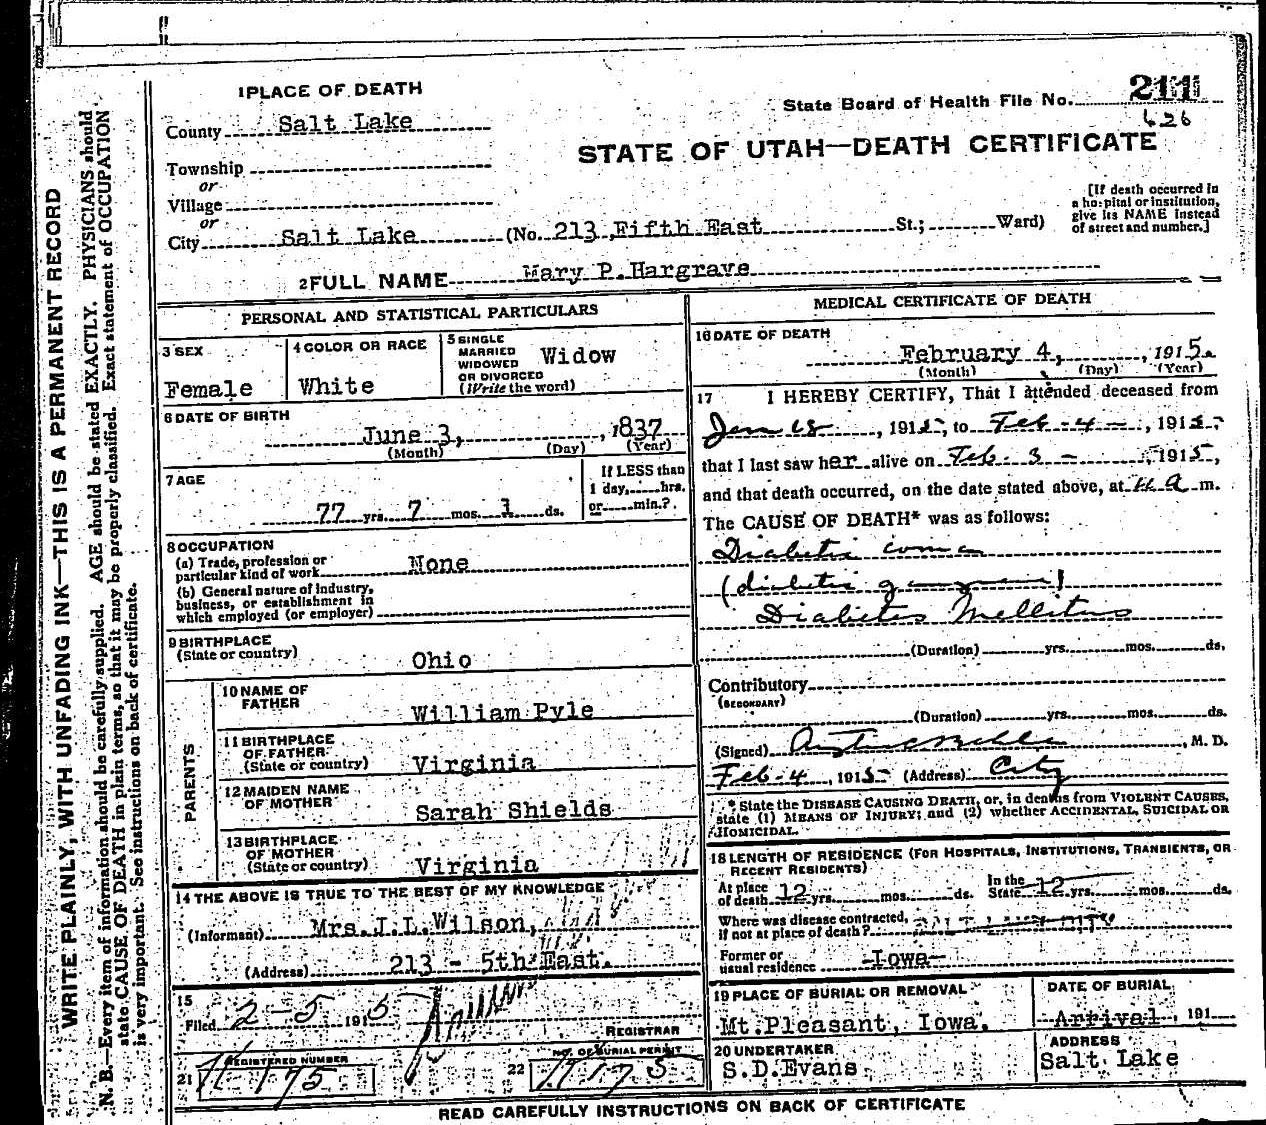 1 PLACE OF DEATH
State Board of Health File No. 211
626
County Salt Lake
STATE OF UTAH—DEATH CERTIFICATE
Township
or
Village
or
City Salt Lake (No. 213 Fifth East St.; Ward)
[If death occurred in
a hospital or institution,
give its NAME instead
of street and number.]
2 FULL NAME Mary P. Hargrave
PERSONAL AND STATISTICAL PARTICULARS
3 SEX
Female
4 COLOR OR RACE
White
5 SINGLE
MARRIED
WIDOWED
OR DIVORCED
(Write the word)
Widow
6 DATE OF BIRTH
June 3, , 1837
(Month) (Day) (Year)
7 AGE
77 yrs. 7 mos. 1 ds.
If LESS than
1 day, hrs.
or min.?
8 OCCUPATION
(a) Trade, profession or
particular kind of work None
(b) General nature of industry,
business, or establishment in
which employed (or employer)
9 BIRTHPLACE
(State or country)
Ohio
PARENTS
10 NAME OF
FATHER
William Pyle
11 BIRTHPLACE
OF FATHER
(State or country) Virginia
12 MAIDEN NAME
OF MOTHER
Sarah Shields
13 BIRTHPLACE
OF MOTHER
(State or country) Virginia
14 THE ABOVE IS TRUE TO THE BEST OF MY KNOWLEDGE
(Informant) Mrs. J.L. Wilson,
(Address) 213 - 5th East.
15
Filed 2-5 1915
REGISTRAR
REGISTERED NUMBER
21
NO. OF BURIAL PERMIT
22
MEDICAL CERTIFICATE OF DEATH
16 DATE OF DEATH
February 4, , 1915.
(Month) (Day) (Year)
17 I HEREBY CERTIFY, That I attended deceased from
Jan , 1915, to Feb-4- , 1915,
that I last saw her alive on Feb. 3 - 1915,
and that death occurred, on the date stated above, at m.
The CAUSE OF DEATH* was as follows:
Diabetic coma
(diabetic gangrene)
Diabetes Mellitus
(Duration) yrs. mos. ds.
Contributory
(SECONDARY)
(Duration) yrs. mos. ds.
(Signed) , M. D.
Feb-4 , 1915 (Address) City
* State the DISEASE CAUSING DEATH, or, in deaths from VIOLENT CAUSES,
state (1) MEANS OF INJURY; and (2) whether ACCIDENTAL, SUICIDAL OR
HOMICIDAL.
18 LENGTH OF RESIDENCE (FOR HOSPITALS, INSTITUTIONS, TRANSIENTS, OR
RECENT RESIDENTS)
At place
of death 12 yrs. mos. ds.
In the
State 12 yrs. mos. ds.
Where was disease contracted,
if not at place of death?
Former or
usual residence Iowa
19 PLACE OF BURIAL OR REMOVAL
Mt. Pleasant, Iowa.
DATE OF BURIAL
Arrival , 191
20 UNDERTAKER
S.D. Evans
ADDRESS
Salt Lake
READ CAREFULLY INSTRUCTIONS ON BACK OF CERTIFICATE
WRITE PLAINLY, WITH UNFADING INK—THIS IS A PERMANENT RECORD
N. B.—Every item of information should be carefully supplied. AGE should be stated EXACTLY. PHYSICIANS should
state CAUSE OF DEATH in plain terms, so that it may be properly classified. Exact statement of OCCUPATION
is very important. See instructions on back of certificate.